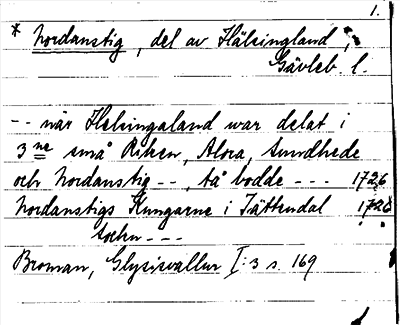 1.
* Nordanstig, del av Hälsingland,
Gävleb. l.
-- när Helsingaland war delat i
3ne små Riken, Alora, Sundhede
och Nordanstig --, tå bodde --- 1726
Nordanstigs Kungarne i Jättendal 1726
Sochn ---
Broman, Glysisvallur I:3 s. 169